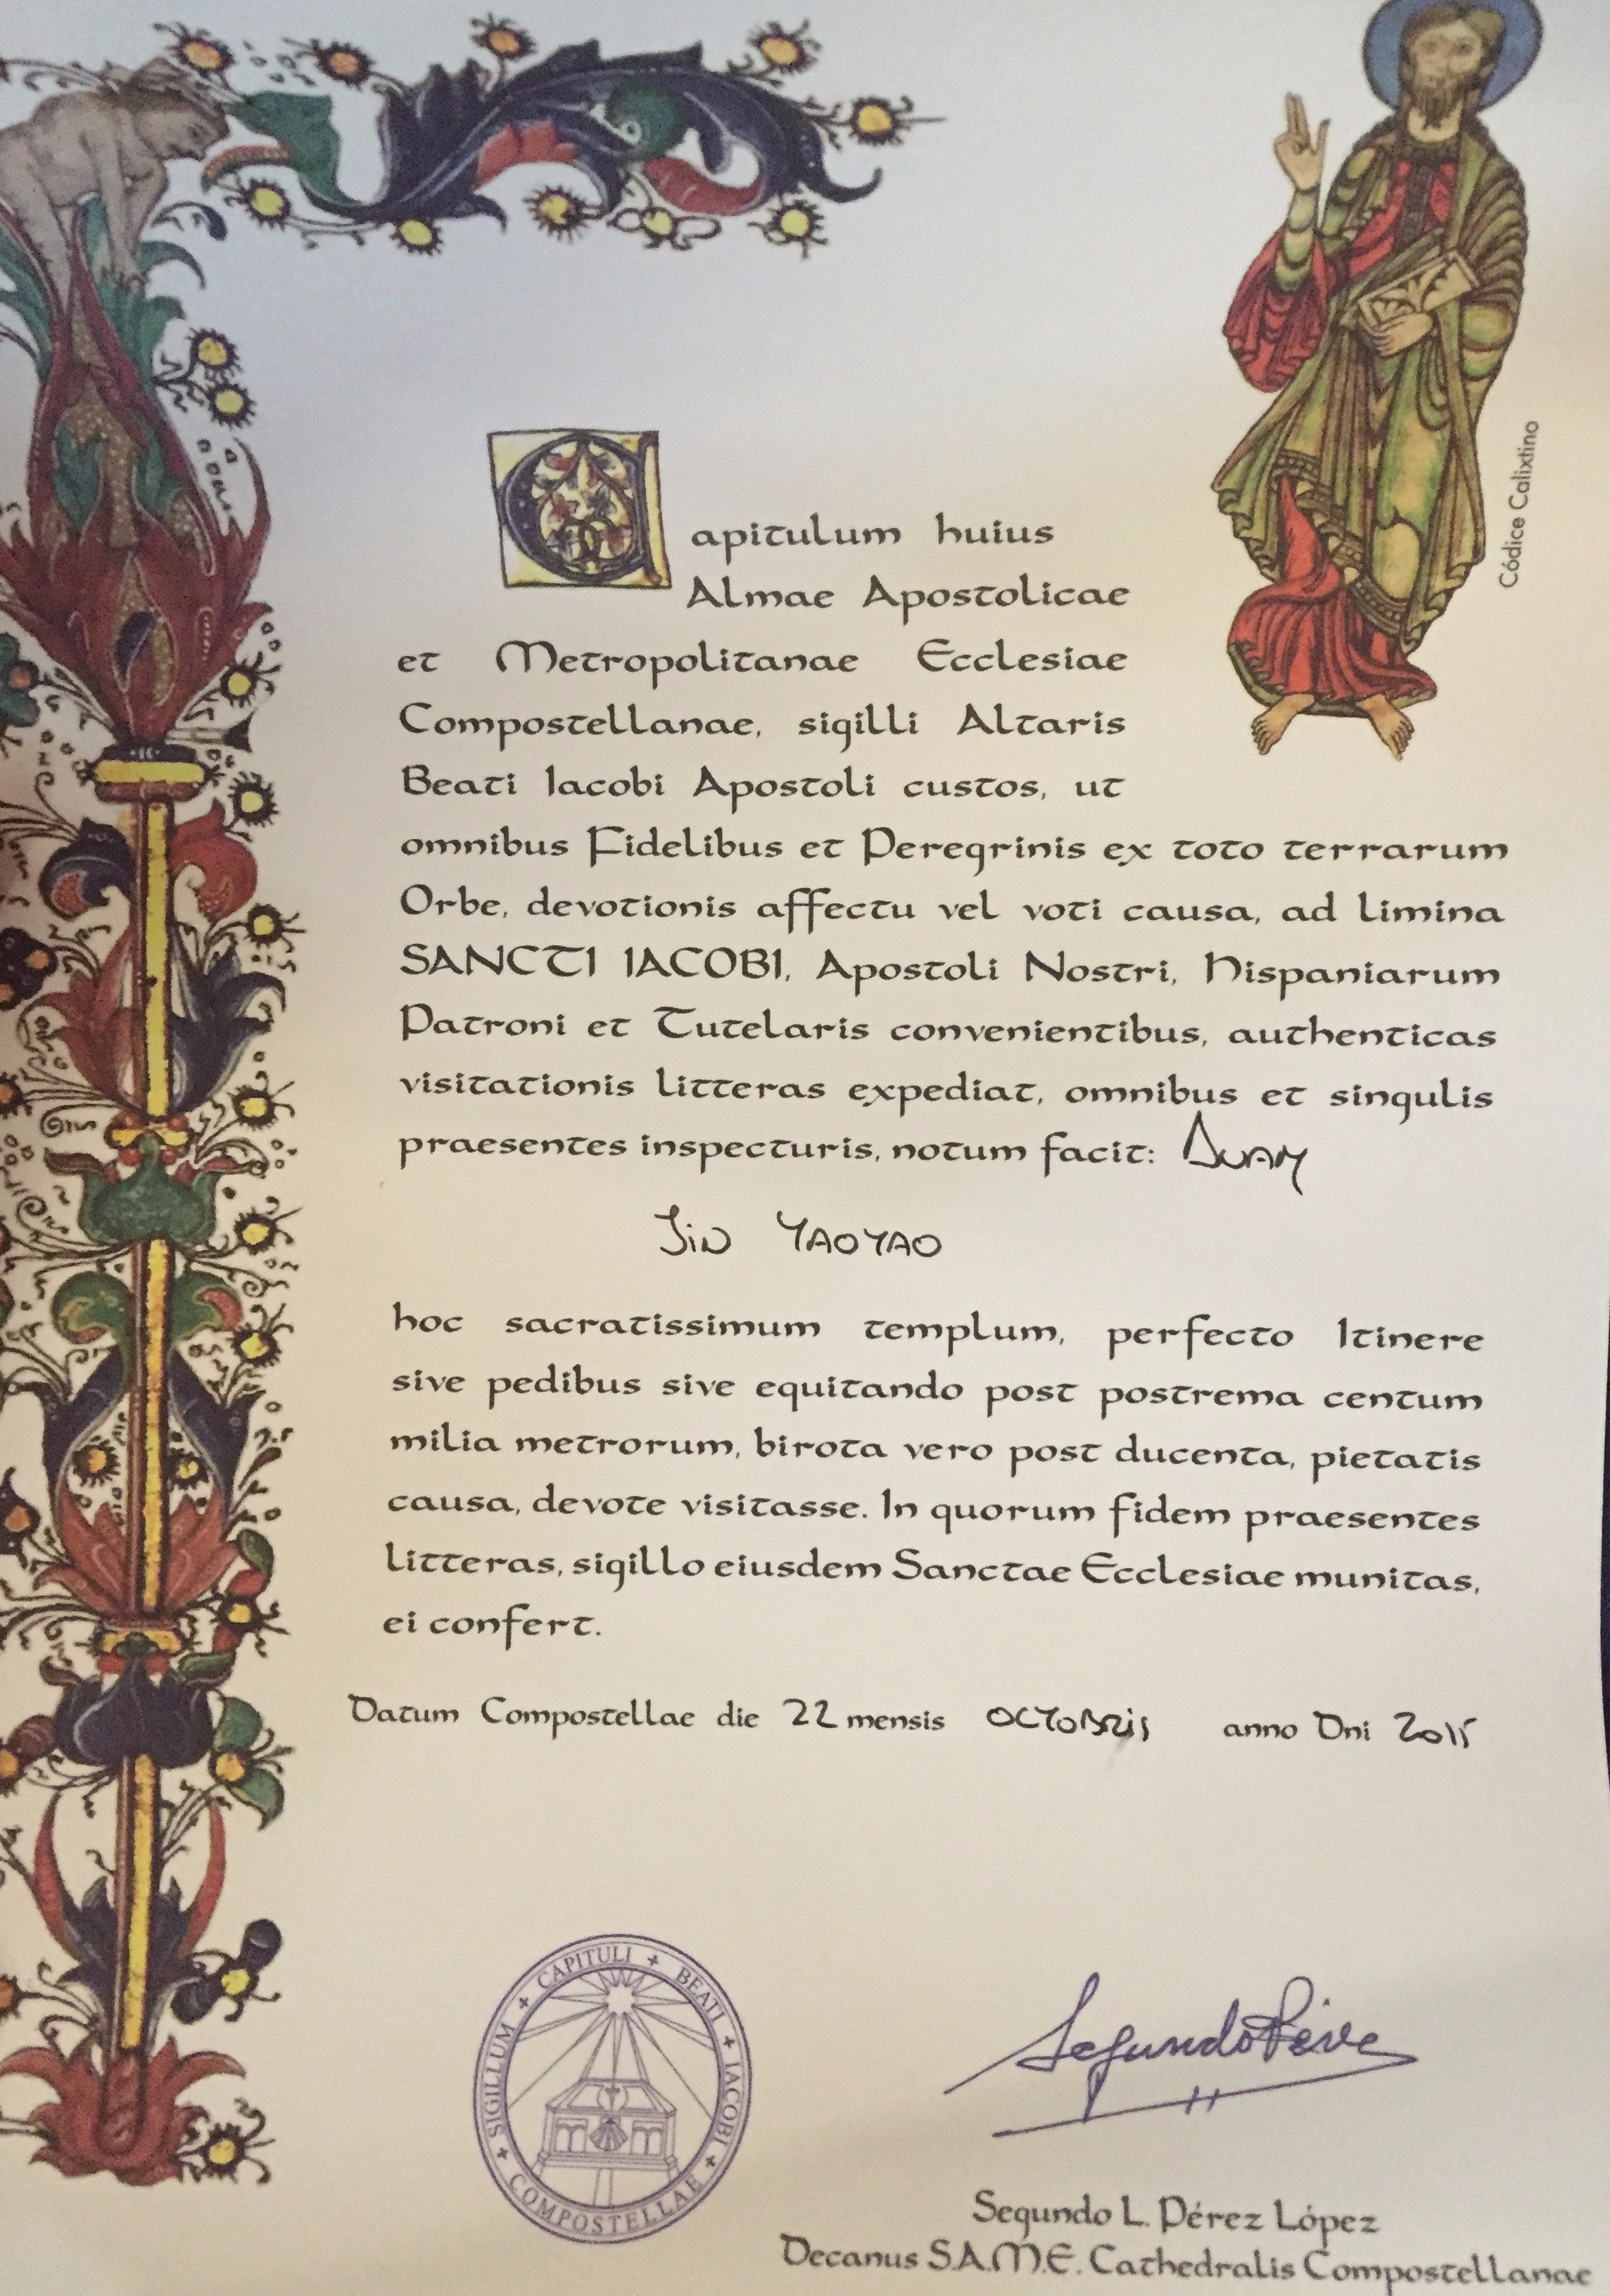 Códice Calixtino
Capitulum huius
Almae Apostolicae
et Metropolitanae Ecclesiae
Compostellanae, sigilli Altaris
Beati Iacobi Apostoli custos, ut
omnibus Fidelibus et Peregrinis ex toto terrarum
Orbe, devotionis affectu vel voti causa, ad limina
SANCTI IACOBI, Apostoli Nostri, Hispaniarum
Patroni et Tutelaris convenientibus, authenticas
visitationis litteras expediat, omnibus et singulis
praesentes inspecturis, notum facit:
YAOYAO
hoc sacratissimum templum, perfecto Itinere
sive pedibus sive equitando post postrema centum
milia metrorum, birota vero post ducenta, pietatis
causa, devote visitasse. In quorum fidem praesentes
litteras, sigillo eiusdem Sanctae Ecclesiae munitas,
ei confert.
Datum Compostellae die 22 mensis OCTOBRIS anno Dni 2015
SIGILLUM + CAPITULI + BEATI + IACOBI + COMPOSTELLAE +
Segundo Pérez
Segundo L. Pérez López
Decanus S.A.M.E. Cathedralis Compostellanae